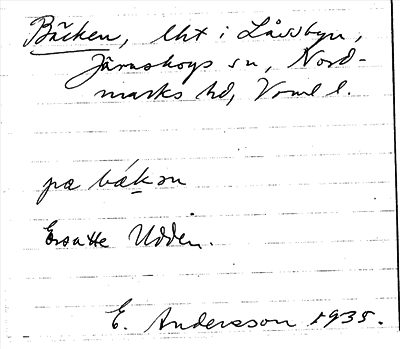 Bäcken, lht i Låssbyn,
Järnskogs sn, Nord-
marks hd, Vrml l.
pæ bækən
Ersatte Udden.
E. Andersson 1935.